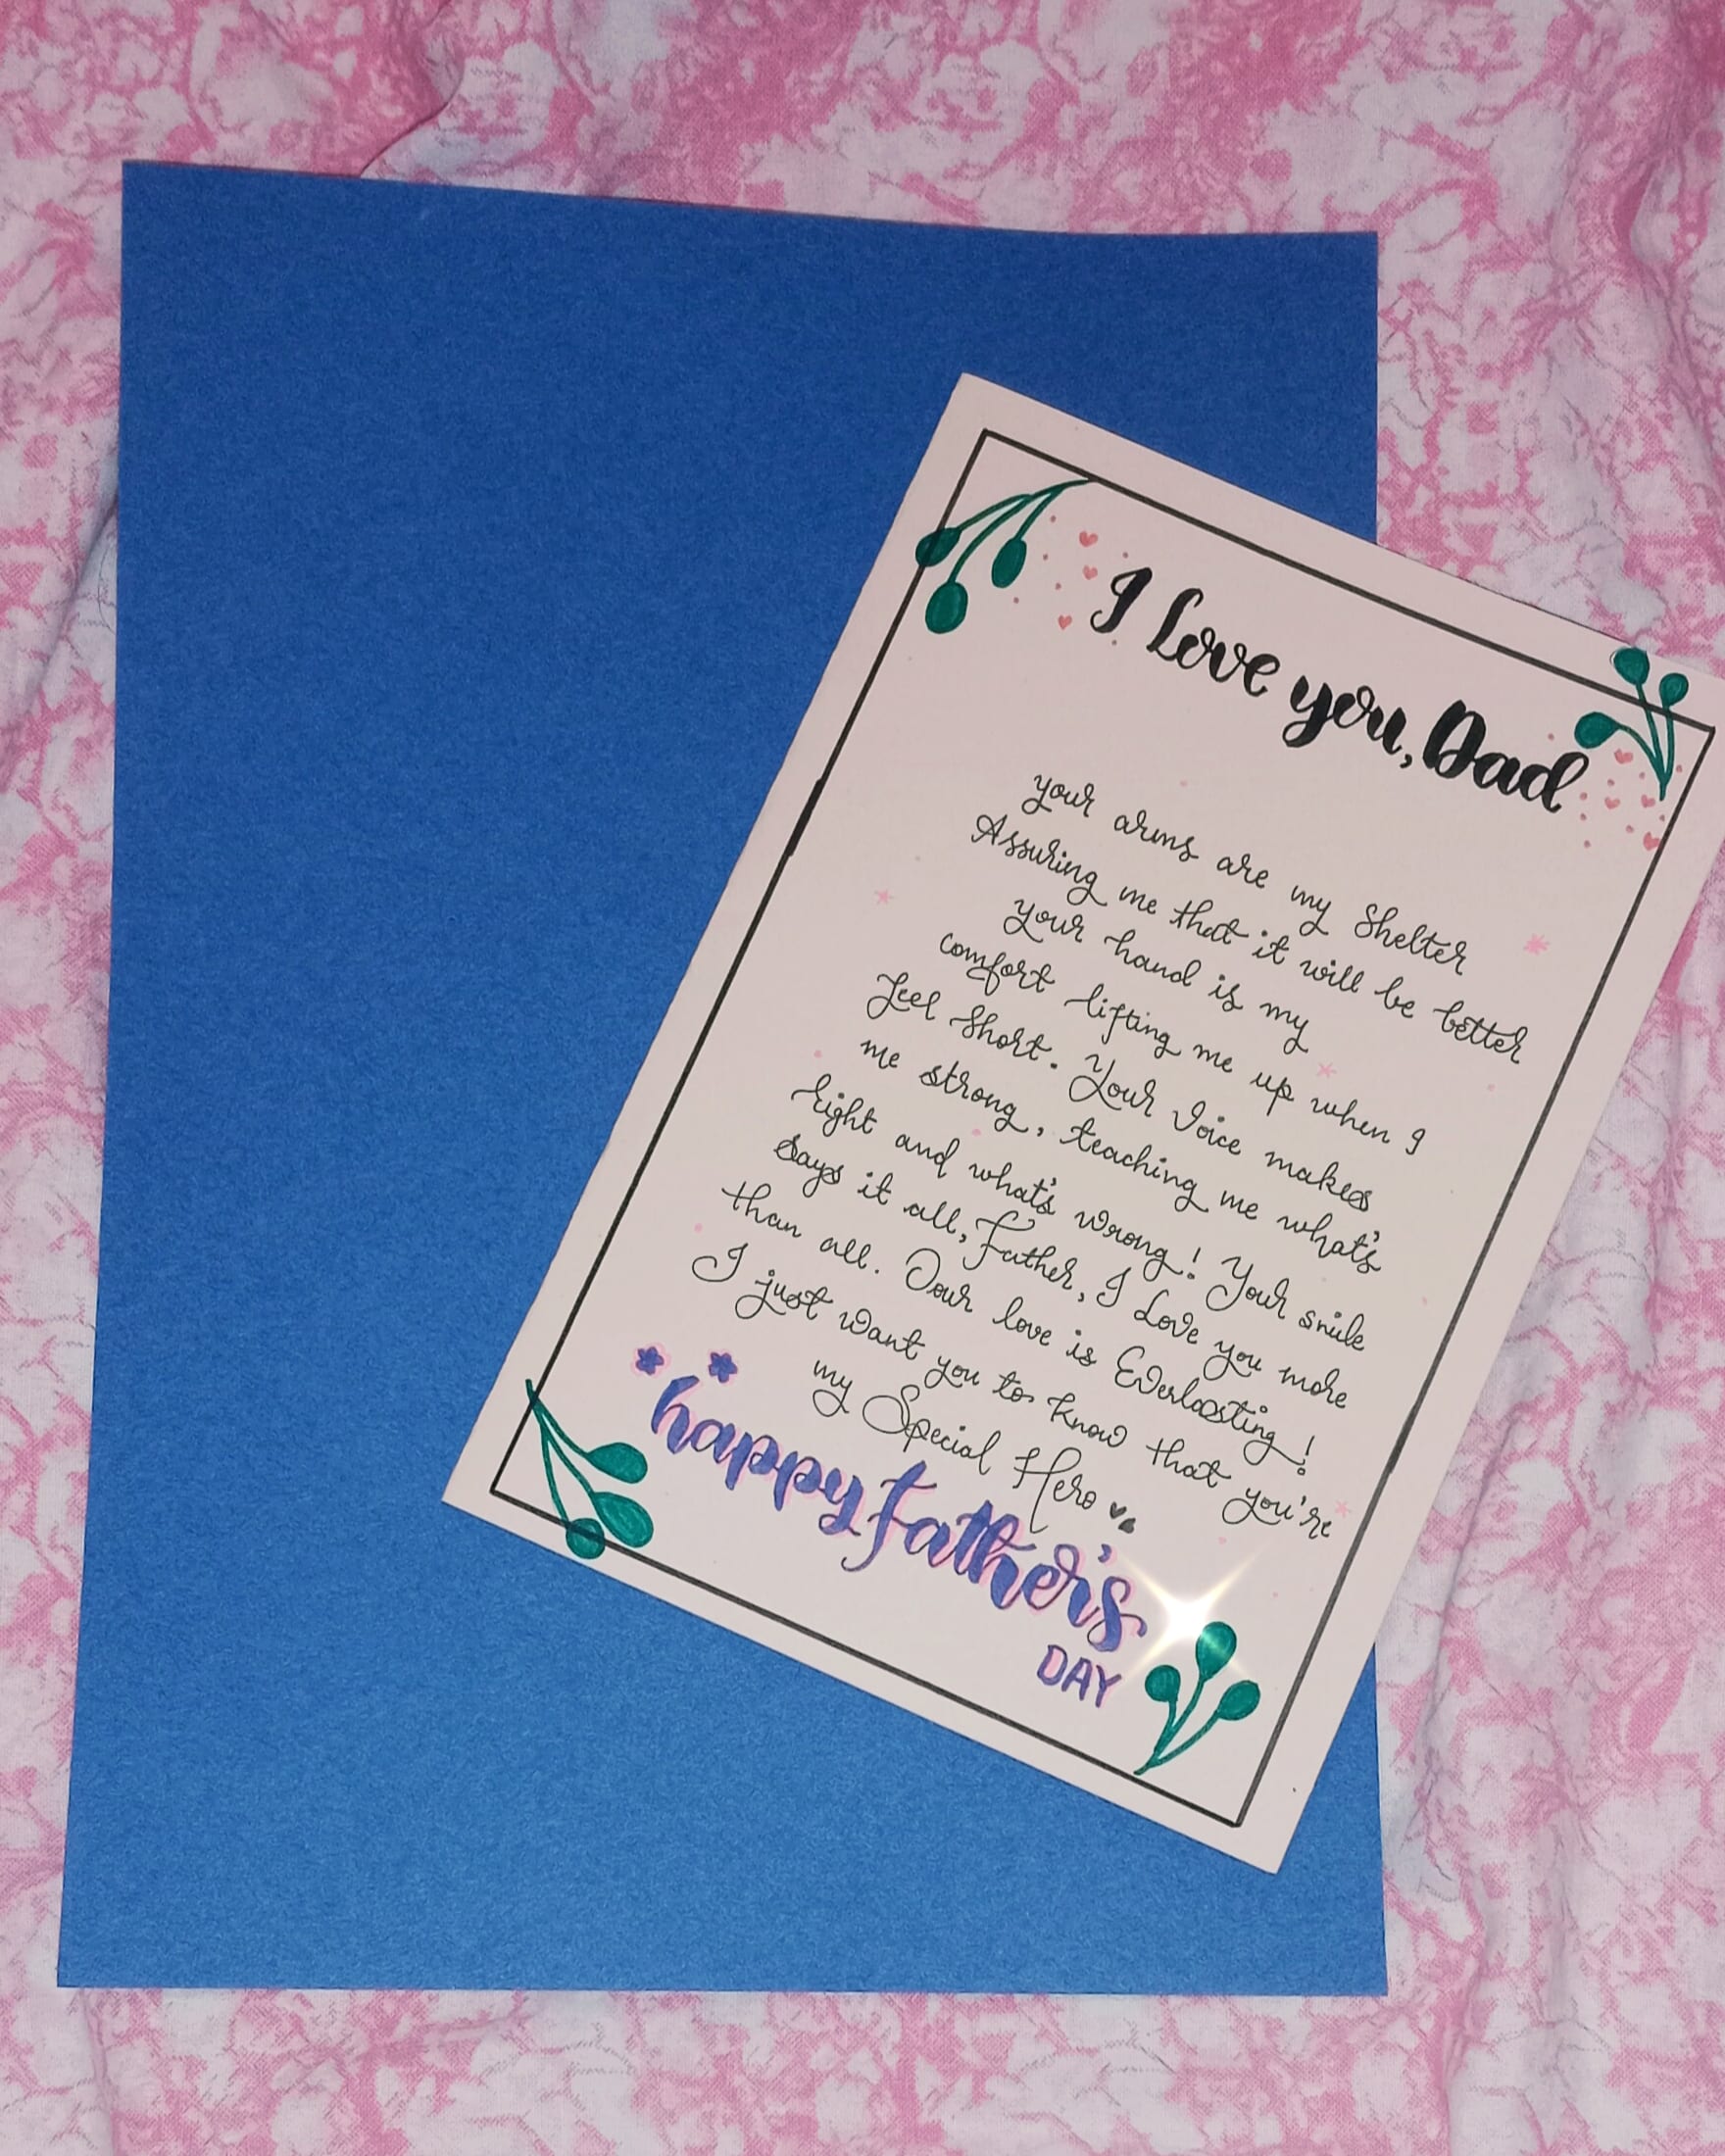 I love you, Dad
your arms are my Shelter
Assuring me that it will be better
your hand is my
comfort lifting me up when I
feel Short. Your Voice makes
me strong, teaching me what's
right and what's wrong! Your smile
Says it all, Father, I Love you more
than all. Oour love is Everlasting!
I just want you to know that you're
my Special Hero
happy father's
DAY